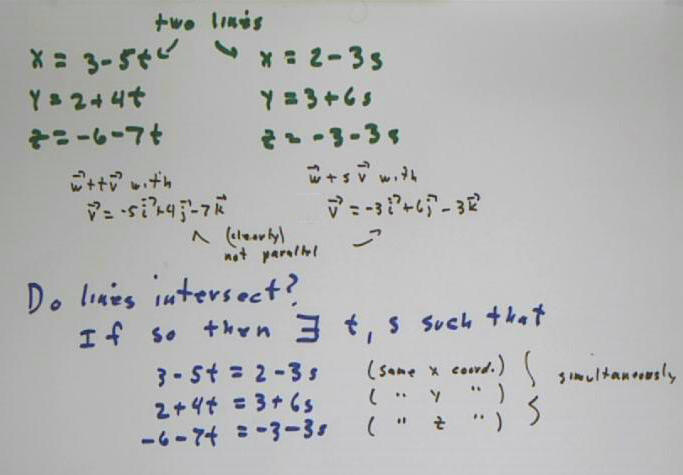 two lines
x = 3-5t
y = 2+4t
z = -6-7t
x = 2-3s
y = 3+6s
z = -3-3s
w⃗+tv⃗ with
v⃗ = -5i⃗+4j⃗-7k⃗
w⃗+s v⃗ with
v⃗ = -3i⃗+6j⃗-3k⃗
(clearly)
not parallel
Do lines intersect?
If so then ∃ t, s such that
3-5t = 2-3s (same x coord.)
2+4t = 3+6s ( " y " )
-6-7t = -3-3s ( " z " )
simultaneously